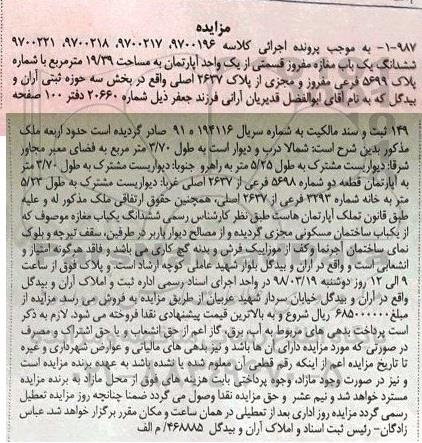 مزایده
۱-۹۸۷- به موجب پرونده اجرائی کلاسه ۹۷۰۰۱۹۶، ۹۷۰۰۲۱۷، ۹۷۰۰۲۱۸، ۹۷۰۰۲۲۱
ششدانگ یک باب مغازه مفروز قسمتی از یک واحد آپارتمان به مساحت ۱۹/۳۹ مترمربع با شماره
پلاک ۵۶۹۹ فرعی مفروز و مجزی از پلاک ۲۶۳۷ اصلی واقع در بخش سه حوزه ثبتی آران و
بیدگل که به نام آقای ابوالفضل قدیریان آرانی فرزند جعفر ذیل شماره ۲۰۶۶۰ دفتر ۱۰۰ صفحه
۱۴۹ ثبت و سند مالکیت به شماره سریال ۱۹۴۱۱۶ ه ۹۱ صادر گردیده است حدود اربعه ملک
مذکور بدین شرح است: شمالا درب و دیوار است به طول ۳/۷۰ متر مربع به فضای معبر مجاور
شرقا: دیواریست مشترک به طول ۵/۲۵ متر به راهرو جنوبا: دیواریست مشترک به طول ۳/۷۰ متر
به آپارتمان قطعه دو شماره ۵۶۹۸ فرعی از ۲۶۳۷ اصلی غربا: دیواریست مشترک به طول ۵/۲۳
متر به خانه شماره ۳۲۹۳ فرعی از ۲۶۳۷ اصلی، همچنین حقوق ارتفاقی ملک مذکور له و علیه
طبق قانون تملک آپارتمان هاست طبق نظر کارشناس رسمی ششدانگ یکباب مغازه موصوف که
از یکباب ساختمان مسکونی مجزی گردیده و از مصالح دیوار باربر در طرفین، سقف تیرچه و بلوک
نمای ساختمان آجرنما وکف از موزاییک فرش و بدنه گچ کاری می باشد و فاقد هرگونه امتیاز و
انشعابی است و واقع در آران و بیدگل بلوار شهید عاملی کوچه ارشاد است. و پلاک فوق از ساعت
۹ الی ۱۲ روز دوشنبه ۹۸/۰۳/۱۹ در واحد اجرای اسناد رسمی اداره ثبت و املاک آران و بیدگل
واقع در آران و بیدگل خیابان سردار شهید عربیان از طریق مزایده به فروش می رسد مزایده از
مبلغ ۶۸۵۰۰۰۰۰۰ ریال شروع و به بالاترین قیمت پیشنهادی نقدا فروخته می شود. لازم به ذکر
است پرداخت بدهی های مربوط به آب، برق، گاز اعم از حق انشعاب و یا حق اشتراک و مصرف
در صورتی که مورد مزایده دارای آن ها باشد و نیز بدهی های مالیاتی و عوارض شهرداری و غیره
تا تاریخ مزایده اعم از اینکه رقم قطعی آن معلوم شده یا نشده باشد به عهده برنده مزایده است
و نیز در صورت وجود مازاد، وجوه پرداختی بابت هزینه های فوق از محل مازاد به برنده مزایده
مسترد خواهد شد و نیم عشر و حق مزایده نقدا وصول می گردد ضمنا چنانچه روز مزایده تعطیل
رسمی گردد مزایده روز اداری بعد از تعطیلی در همان ساعت و مکان مقرر برگزار خواهد شد. عباس
زادگان- رئیس ثبت اسناد و املاک آران و بیدگل ۴۶۸۸۸۵/ م الف